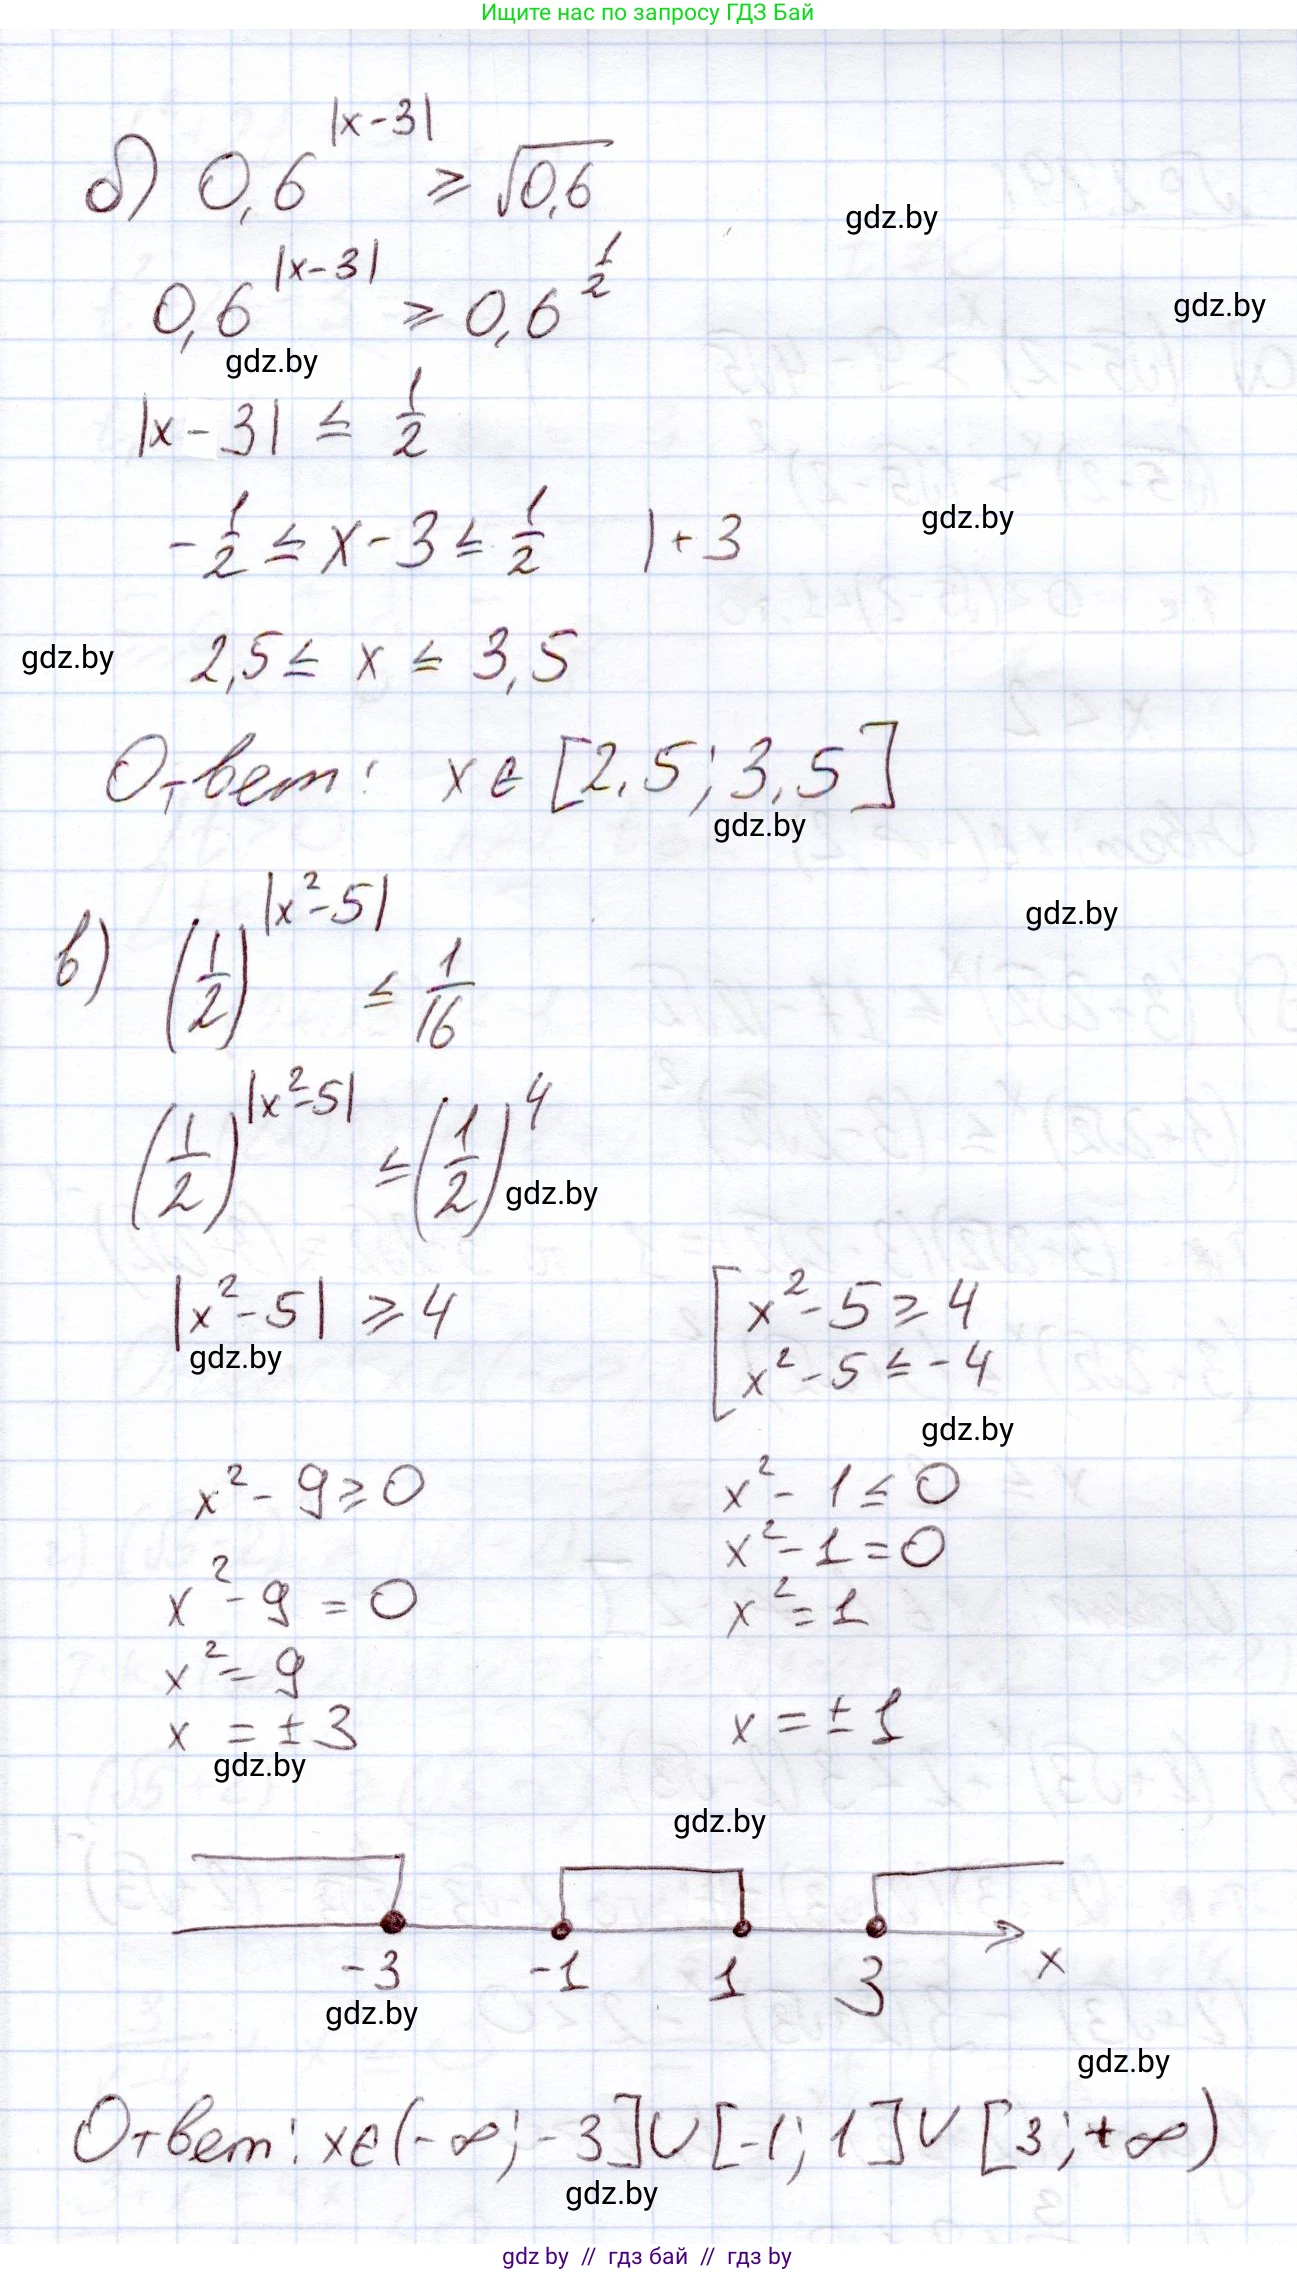 Ищите нас по запросу ГДЗ Бай
б) 0,6^|x-3| ≥ √0,6
gdz.by
0,6^|x-3| ≥ 0,6^1/2
gdz.by
gdz.by
|x-3| ≤ 1/2
-1/2 ≤ x-3 ≤ 1/2 |+3
gdz.by
gdz.by
2,5 ≤ x ≤ 3,5
Ответ: x∈[2,5; 3,5]
gdz.by
в) (1/2)^|x²-5| ≤ 1/16
gdz.by
(1/2)^|x²-5| ≤ (1/2)^4
gdz.by
|x²-5| ≥ 4
gdz.by
[ x²-5 ≥ 4
x²-5 ≤ -4
gdz.by
x²-9 ≥ 0
x²-9 = 0
x² = 9
x = ±3
gdz.by
x²-1 ≤ 0
x²-1 = 0
x² = 1
x = ±1
gdz.by
-3 -1 1 3 x
gdz.by
gdz.by
Ответ: x∈(-∞; -3]∪[-1; 1]∪[3; +∞)
gdz.by
gdz by // гдз бай // гдз by